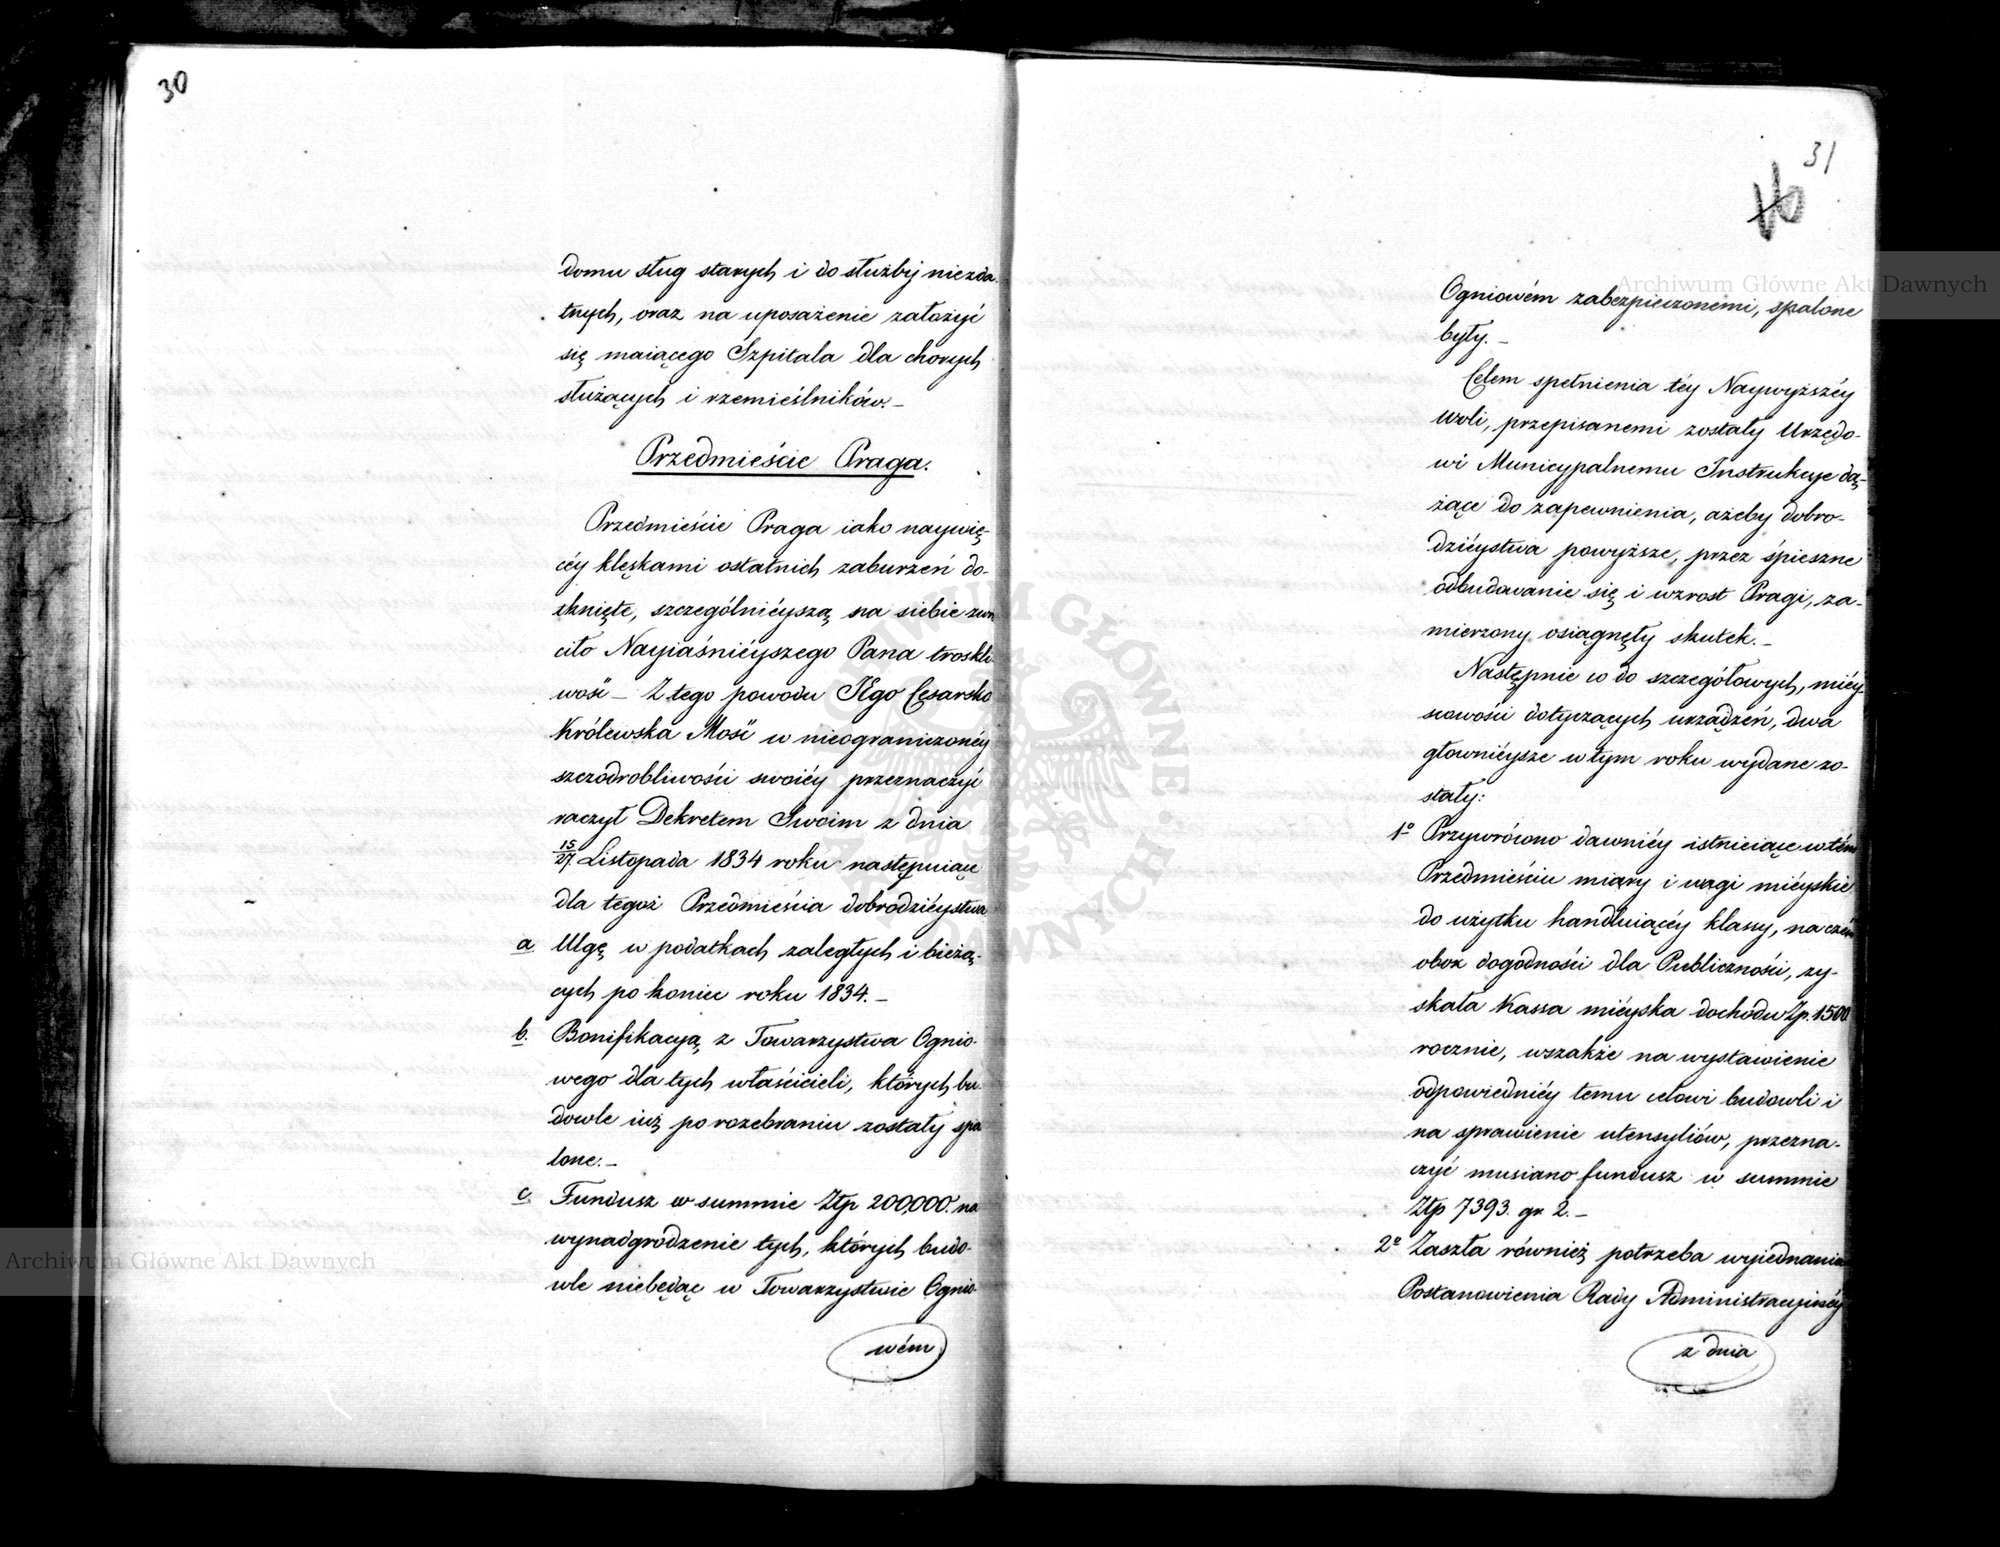 30
domu sług starych i do służby niezda-
tnych, oraz na uposażenie założyć
się maiącego Szpitala dla chorych
służących i rzemieślników.–
Przedmieście Praga.
Przedmieście Praga iako naywię-
céy klęskami ostatnich zaburzeń do-
tknięte, szczególniéyszą na siebie zwró
ciło Nayiaśniéyszego Pana troskli-
wość – Z tego powodu JEgo Cesarsko
Królewska Mość w nieograniczonéy
szczodrobliwości swoiéy przeznaczyć
raczył Dekretem Swoim z dnia
15/27 Listopada 1834 roku następuiące
dla tegoż Przedmieścia dobrodziéystwa
a Ulgę w podatkach zaległych i bieżą-
cych po koniec roku 1834.–
b. Bonifikacyą z Towarzystwa Ognio-
wego dla tych właścicieli, których bu-
dowle iuż po rozebraniu zostały spa
lone.–
c. Fundusz w summie Złp 200,000. na
wynadgrodzenie tych, których budo-
wle niebędąc w Towarzystwie Ognio-
wém
31
16
Ogniowém zabezpieczonemi, spalone
były.–
Celem spełnienia téy Naywyższéy
Woli, przepisanemi zostały Urzędo-
wi Municypalnemu Instrukcye dą-
żące do zapewnienia, ażeby dobro-
dziéystwa powyższe, przez śpieszne
odbudowanie się i wzrost Pragi, za-
mierzony osiągnęły skutek.–
Następnie co do szczegółowych, miéy-
scowości dotyczących urządzeń, dwa
głowniéysze w tym roku wydane zo-
stały:
1o Przywrócono dawniéy istnieiące w tém
Przedmieściu miary i wagi miéyskie
do użytku handluiącéy klassy, na czém
obok dogodności dla Publiczności, zy-
skała Kassa miéyska dochodu Zp. 1500
rocznie, wszakże na wystawienie
odpowiedniéy temu celowi budowli i
na sprawienie utensyliów, przezna-
czyć musiano fundusz w summie
Złp 7393. gr. 2.–
2o Zaszła również potrzeba wyiednania
Postanowienia Rady Administracyinéy
z dnia
Archiwum Główne Akt Dawnych
Archiwum Główne Akt Dawnych
ARCHIWUM GŁÓWNE AKT DAWNYCH